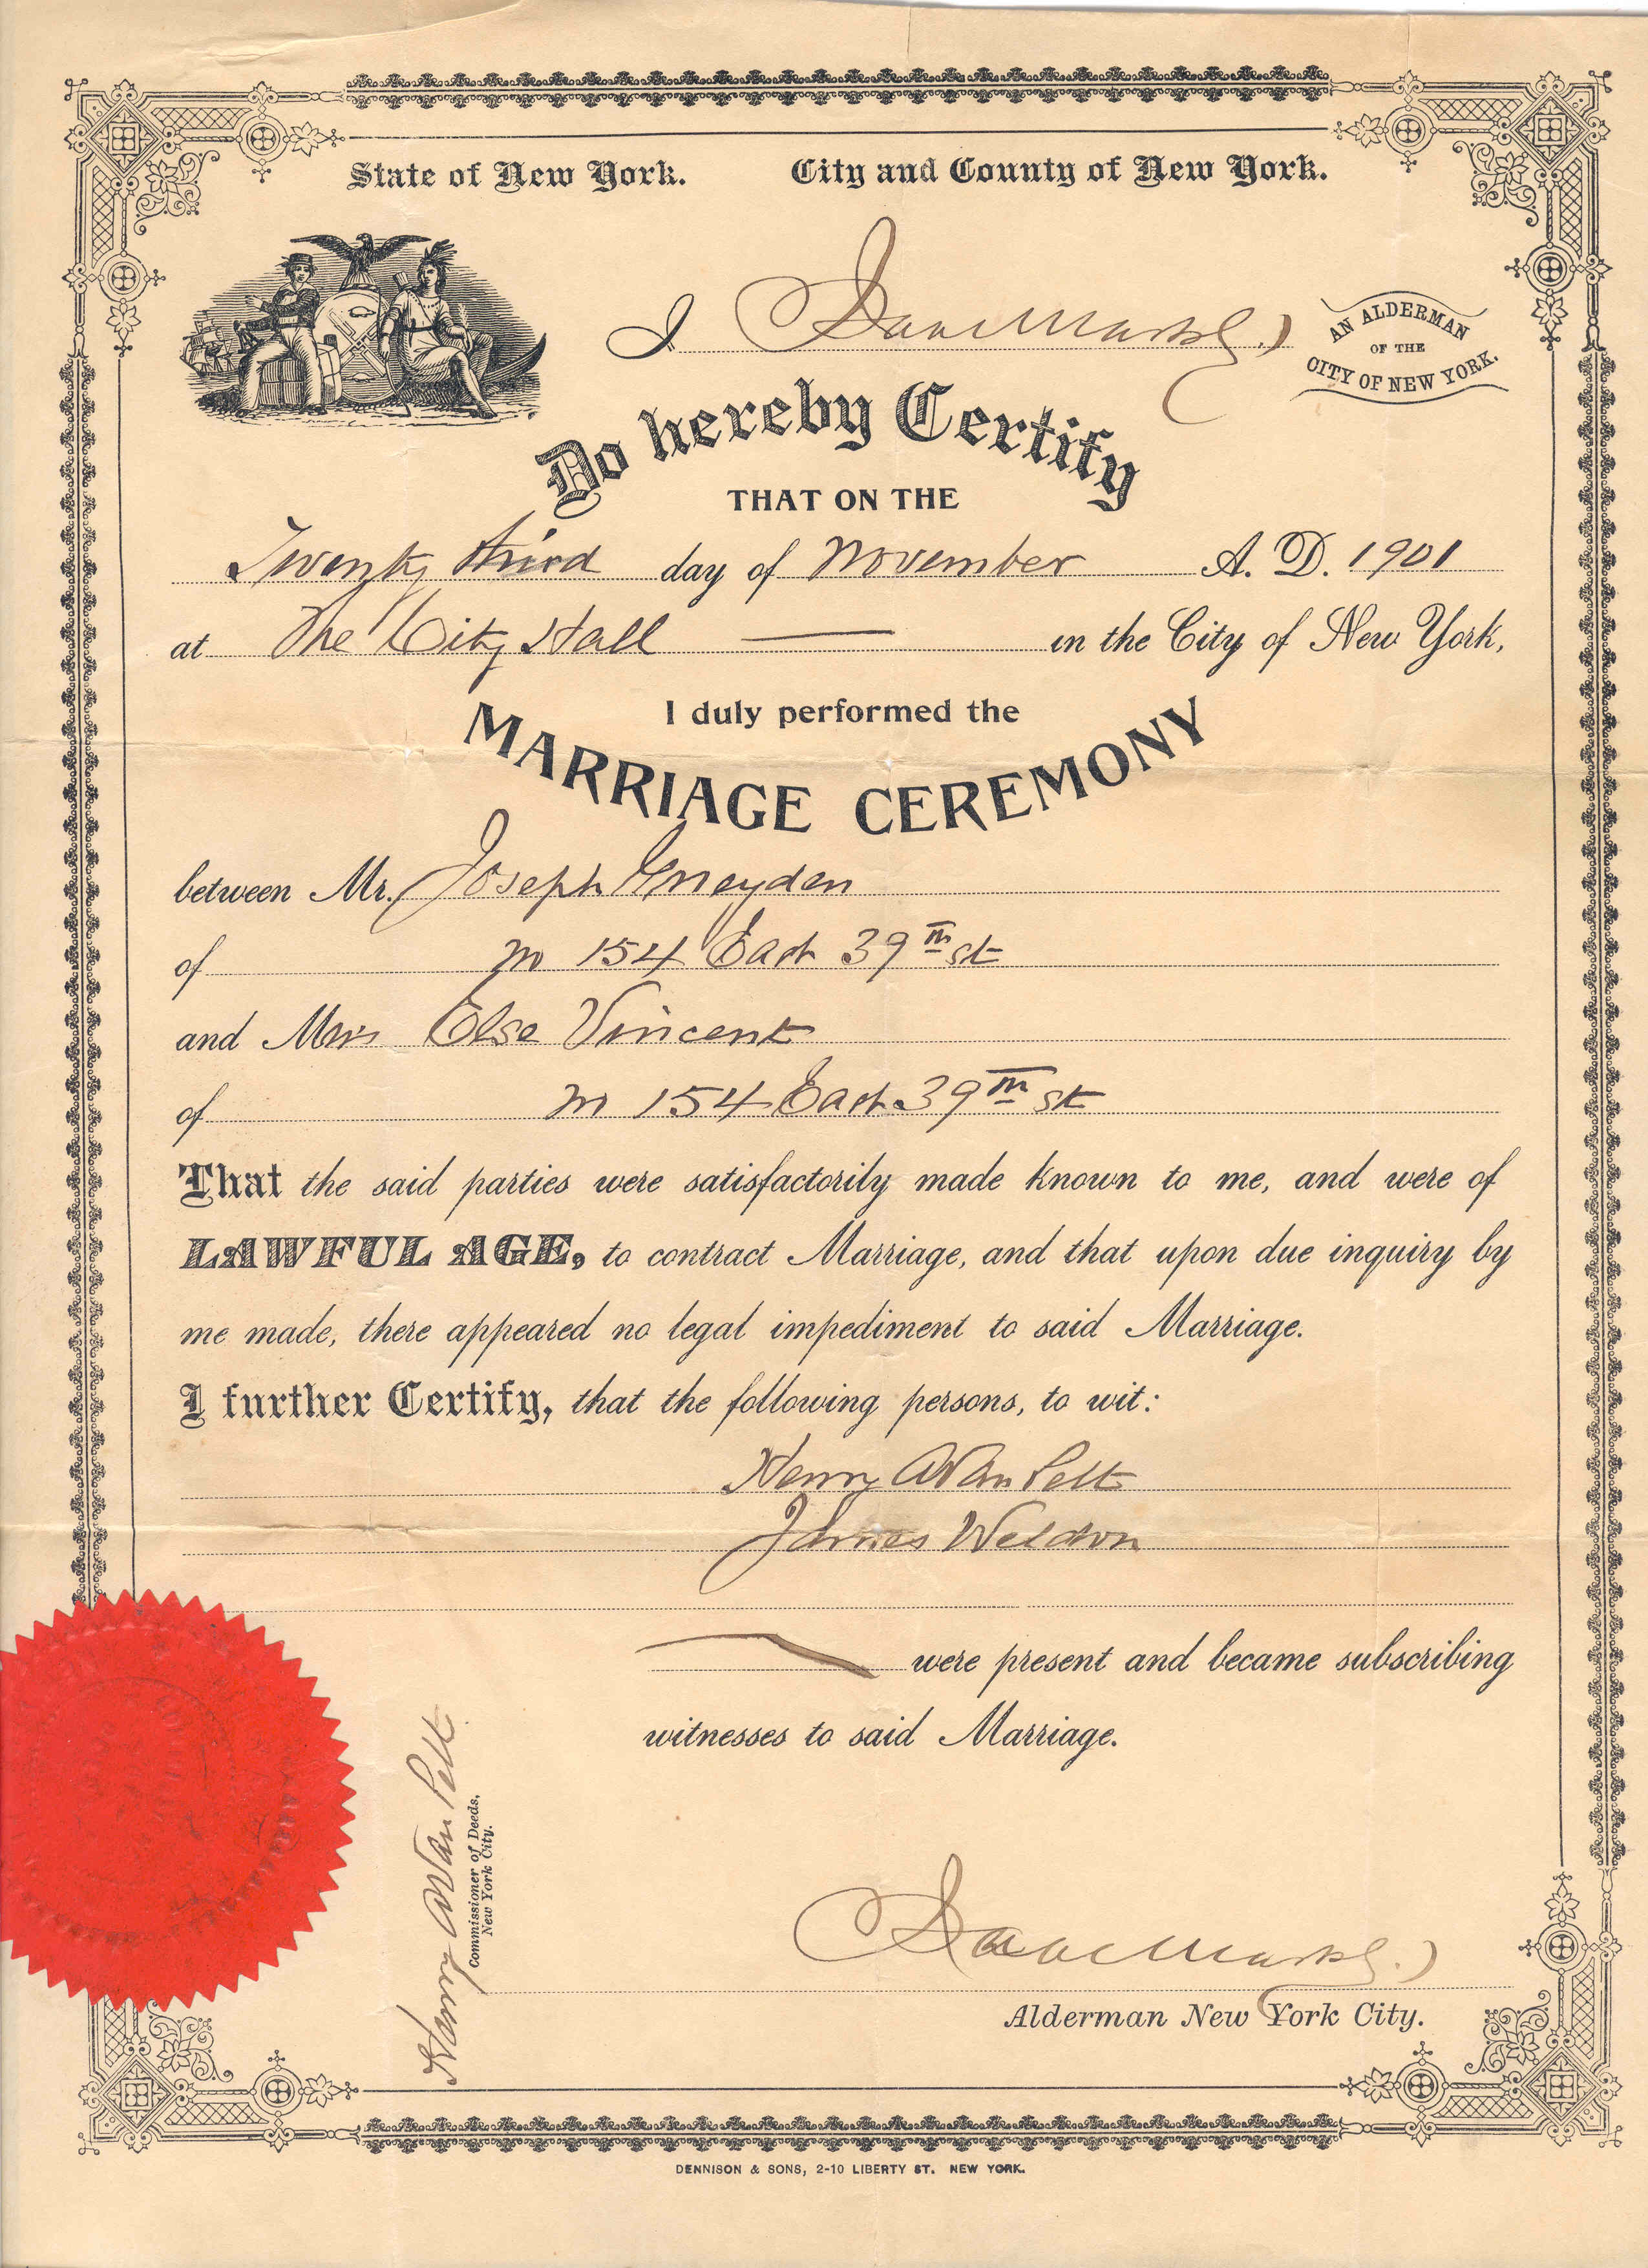 State of New York. City and County of New York.
I Isaac Marks
AN ALDERMAN
OF THE
CITY OF NEW YORK.
Do hereby Certify
THAT ON THE
Twenty third day of November A. D. 1901
at The City Hall in the City of New York,
I duly performed the
MARRIAGE CEREMONY
between Mr. Joseph
of No 154 East 39th st
and Miss Else Vincent
of No 154 East 39th st
That the said parties were satisfactorily made known to me, and were of
LAWFUL AGE, to contract Marriage, and that upon due inquiry by
me made, there appeared no legal impediment to said Marriage.
I further Certify, that the following persons, to wit:
Henry A Van Pelt
James Weldon
were present and became subscribing
witnesses to said Marriage.
Henry A Van Pelt
Commissioner of Deeds,
New York City.
Isaac Marks
Alderman New York City.
DENNISON & SONS, 2-10 LIBERTY ST. NEW YORK.